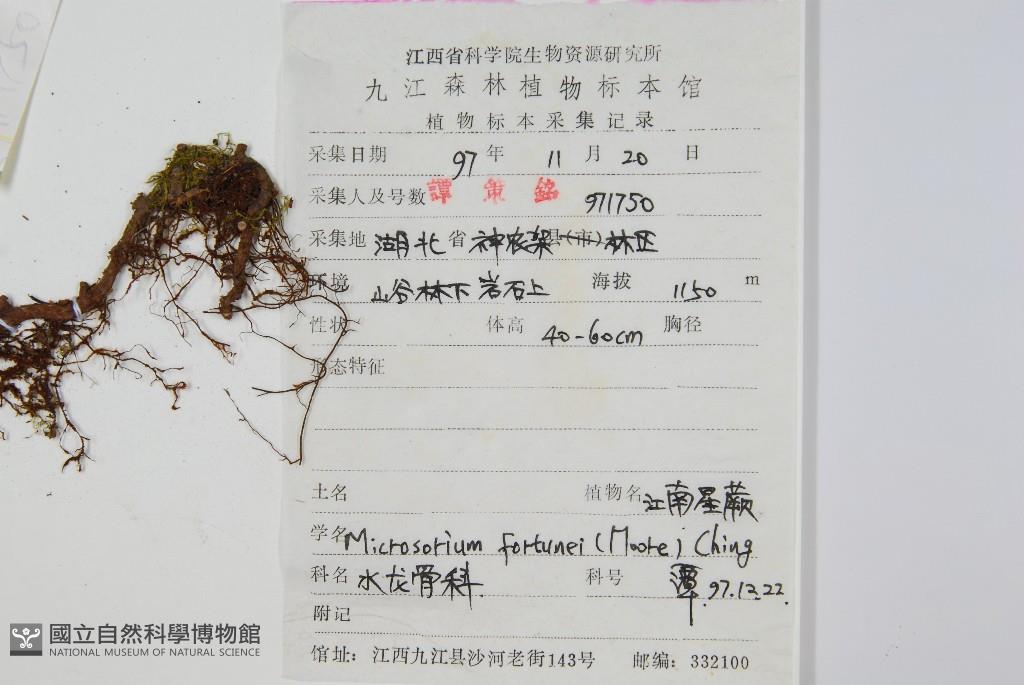 江西省科学院生物资源研究所
九江森林植物标本馆
植物标本采集记录
采集日期 97 年 11 月 20 日
采集人及号数 譚策銘 971750
采集地 湖北 省 神农架 县(市) 林区
环境 山谷林下岩石上 海拔 1150 m
性状 体高 40-60cm 胸径
形态特征
土名 植物名 江南星蕨
学名 Microsorium fortunei (Moore) Ching
科名 水龙骨科 科号 譚 97.12.22.
附记
馆址：江西九江县沙河老街143号 邮编：332100
國立自然科學博物館
NATIONAL MUSEUM OF NATURAL SCIENCE